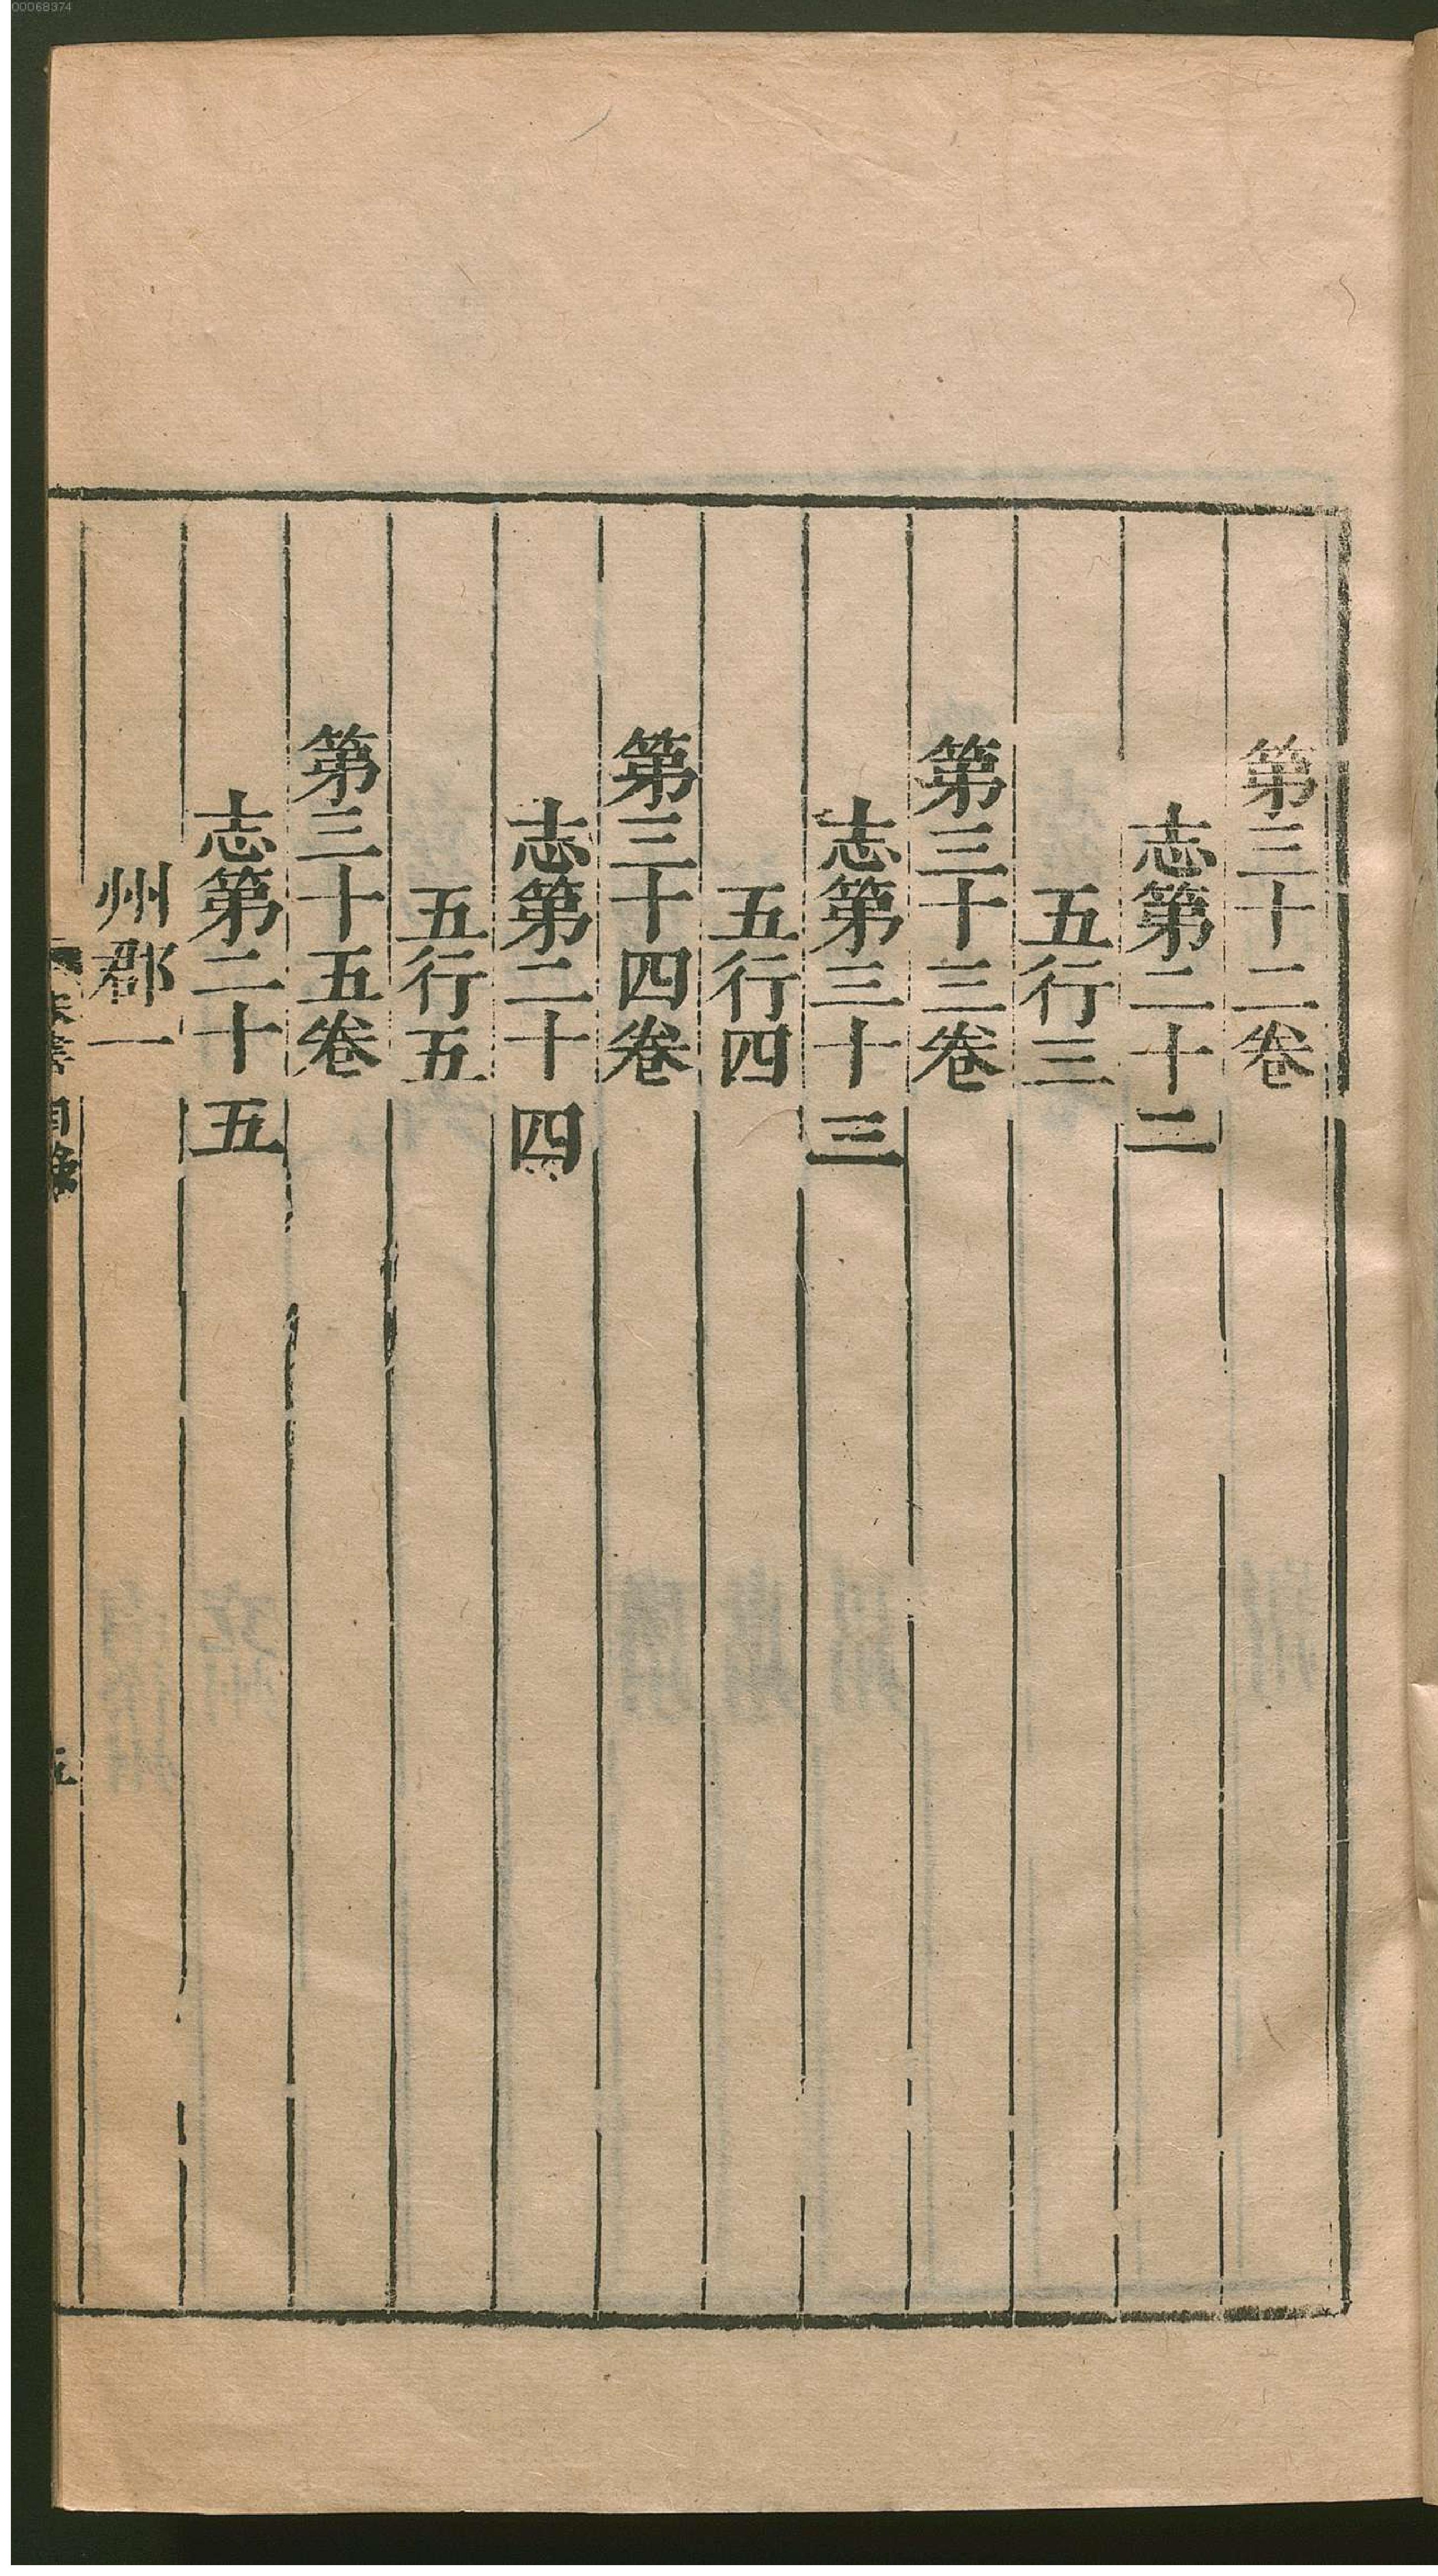 00068374
第三十二卷
志第二十二
五行三
第三十三卷
志第三十三
五行四
第三十四卷
志第二十四
五行五
第三十五卷
志第二十五
州郡一